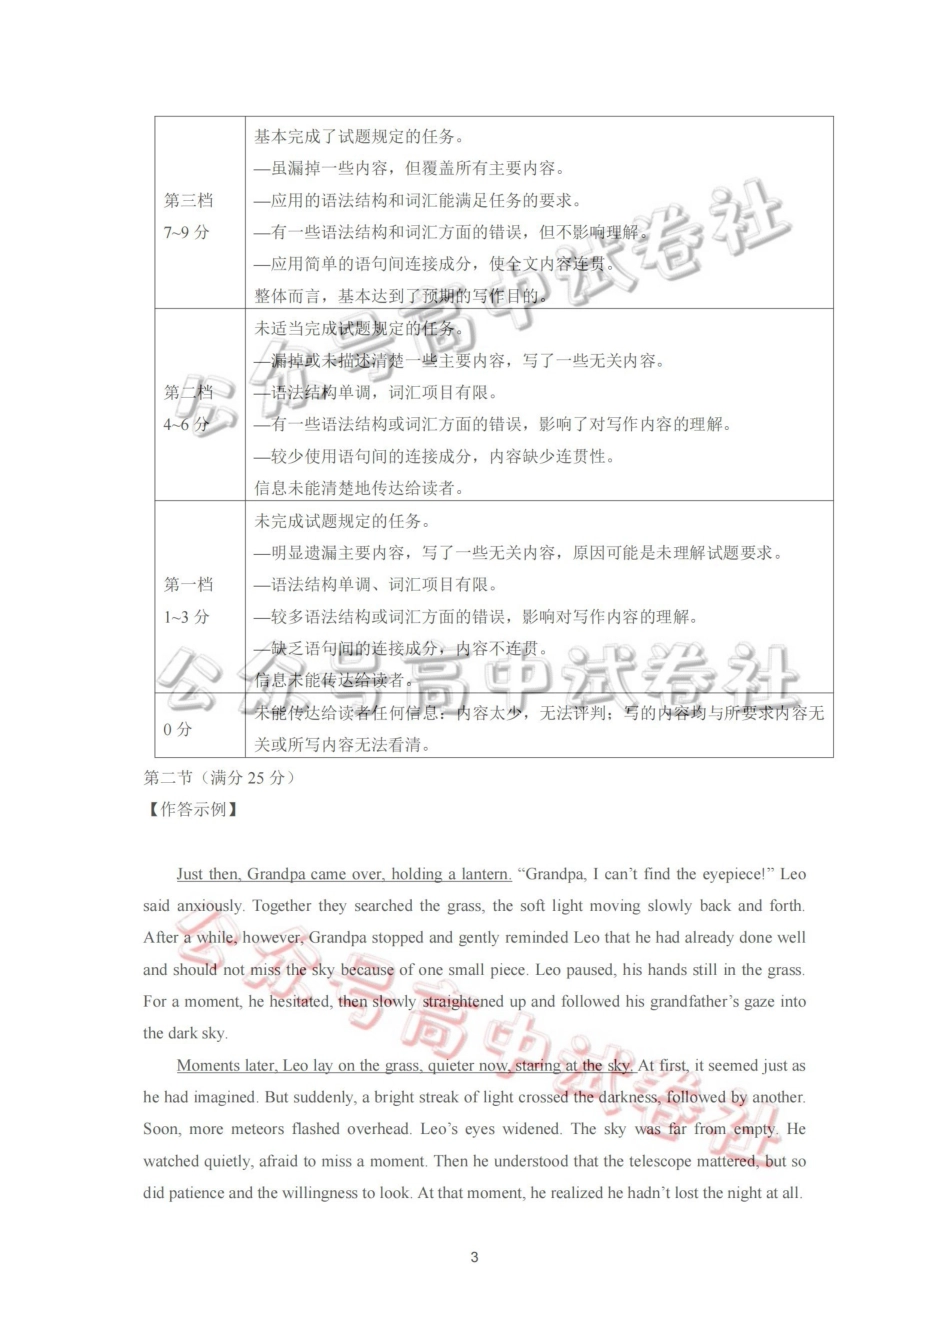 基本完成了试题规定的任务。
—虽漏掉一些内容，但覆盖所有主要内容。
第三档
—应用的语法结构和词汇能满足任务的要求。
7~9 分
—有一些语法结构和词汇方面的错误，但不影响理解。
—应用简单的语句间连接成分，使全文内容连贯。
整体而言，基本达到了预期的写作目的。
未适当完成试题规定的任务。
—漏掉或未描述清楚一些主要内容，写了一些无关内容。
第二档
—语法结构单调，词汇项目有限。
4~6 分
—有一些语法结构或词汇方面的错误，影响了对写作内容的理解。
—较少使用语句间的连接成分，内容缺少连贯性。
信息未能清楚地传达给读者。
未完成试题规定的任务。
—明显遗漏主要内容，写了一些无关内容，原因可能是未理解试题要求。
第一档
—语法结构单调、词汇项目有限。
1~3 分
—较多语法结构或词汇方面的错误，影响对写作内容的理解。
—缺乏语句间的连接成分，内容不连贯。
信息未能传达给读者。
0 分
未能传达给读者任何信息：内容太少，无法评判；写的内容均与所要求内容无
关或所写内容无法看清。
第二节（满分 25 分）
【作答示例】
Just then, Grandpa came over, holding a lantern. “Grandpa, I can’t find the eyepiece!” Leo
said anxiously. Together they searched the grass, the soft light moving slowly back and forth.
After a while, however, Grandpa stopped and gently reminded Leo that he had already done well
and should not miss the sky because of one small piece. Leo paused, his hands still in the grass.
For a moment, he hesitated, then slowly straightened up and followed his grandfather’s gaze into
the dark sky.
Moments later, Leo lay on the grass, quieter now, staring at the sky. At first, it seemed just as
he had imagined. But suddenly, a bright streak of light crossed the darkness, followed by another.
Soon, more meteors flashed overhead. Leo’s eyes widened. The sky was far from empty. He
watched quietly, afraid to miss a moment. Then he understood that the telescope mattered, but so
did patience and the willingness to look. At that moment, he realized he hadn’t lost the night at all.
3
公众号高中试卷社
公众号高中试卷社
公众号高中试卷社